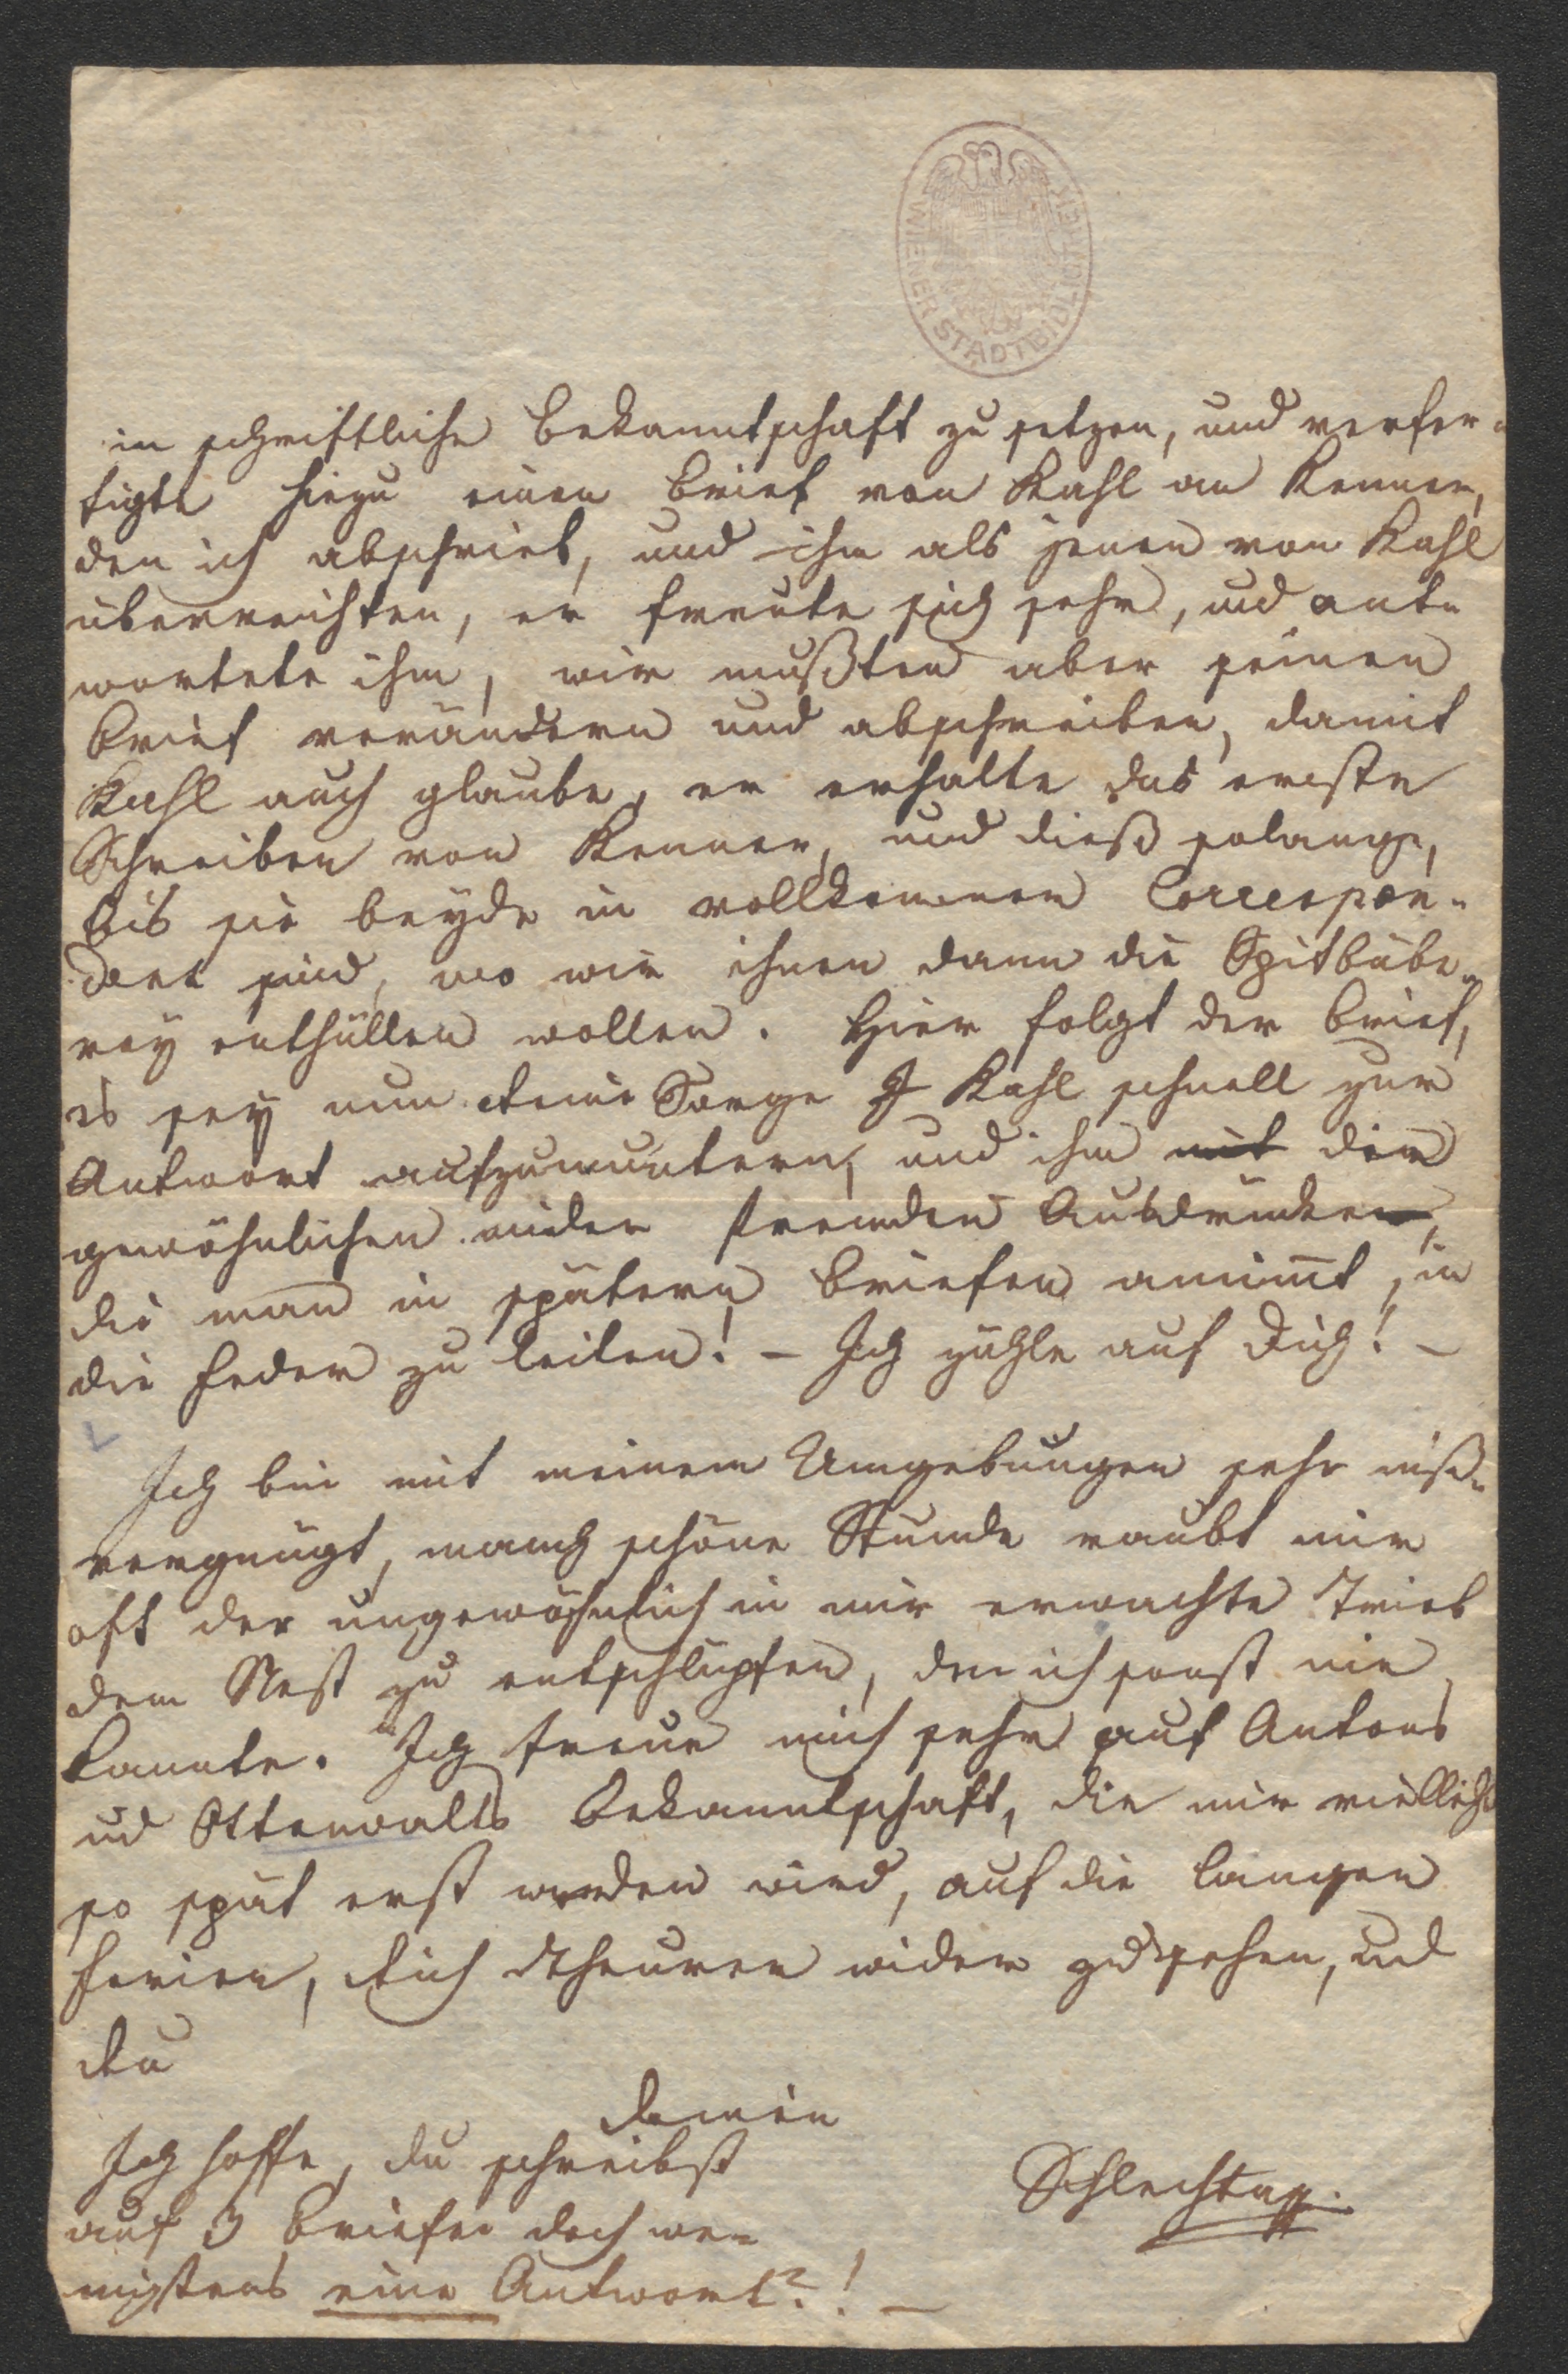 WIENER STADTBIBLIOTHEK
in schriftliche Bekanntschaft zu setzen, und verfer-
tigte hiezu einen Brief von Kahl an Kenner,
den ich abschrieb, und ihm als jenen von Kahl
überreichten, er freute sich sehr, und ant-
wortete ihm, wir mußten aber seinen
Brief verändern und abschreiben, damit
Kahl auch glaube, er erhalte das erste
Schreiben von Kenner, und dieß solange,
bis sie beyde in vollkommener Correspon-
denz sind, wo wir ihnen dann die Spitbübe-
rey enthüllen wollen. Hier folgt der Brief,
es sey nun deine Sorge Kahl schnell zur
Antwort aufzumuntern, und ihm mit die
gewöhnlichen minder fremden Ausdrücke,
die man in spätern Briefen annimmt, in
die Feder zu leiten! – Ich zähle auf Dich! –
Ich bin mit meinem Umgebungen sehr miß-
vergnügt, manch schöne Stunde raubt mir
oft der ungewöhnlich in mir erwachte Trieb
dem Nest zu entschlüpfen, den ich sonst nie
kannte. Ich freue mich sehr auf Antons
und Ottenwalts Bekanntschaft, die mir vielleicht
so spät erst werden wird, auf die langen
Ferien, dich Theuren wieder zu sehen, und
du
deinen
Schlechta
Ich hoffe, du schreibst
auf 3 Briefe doch we-
nigstens eine Antwort?! –